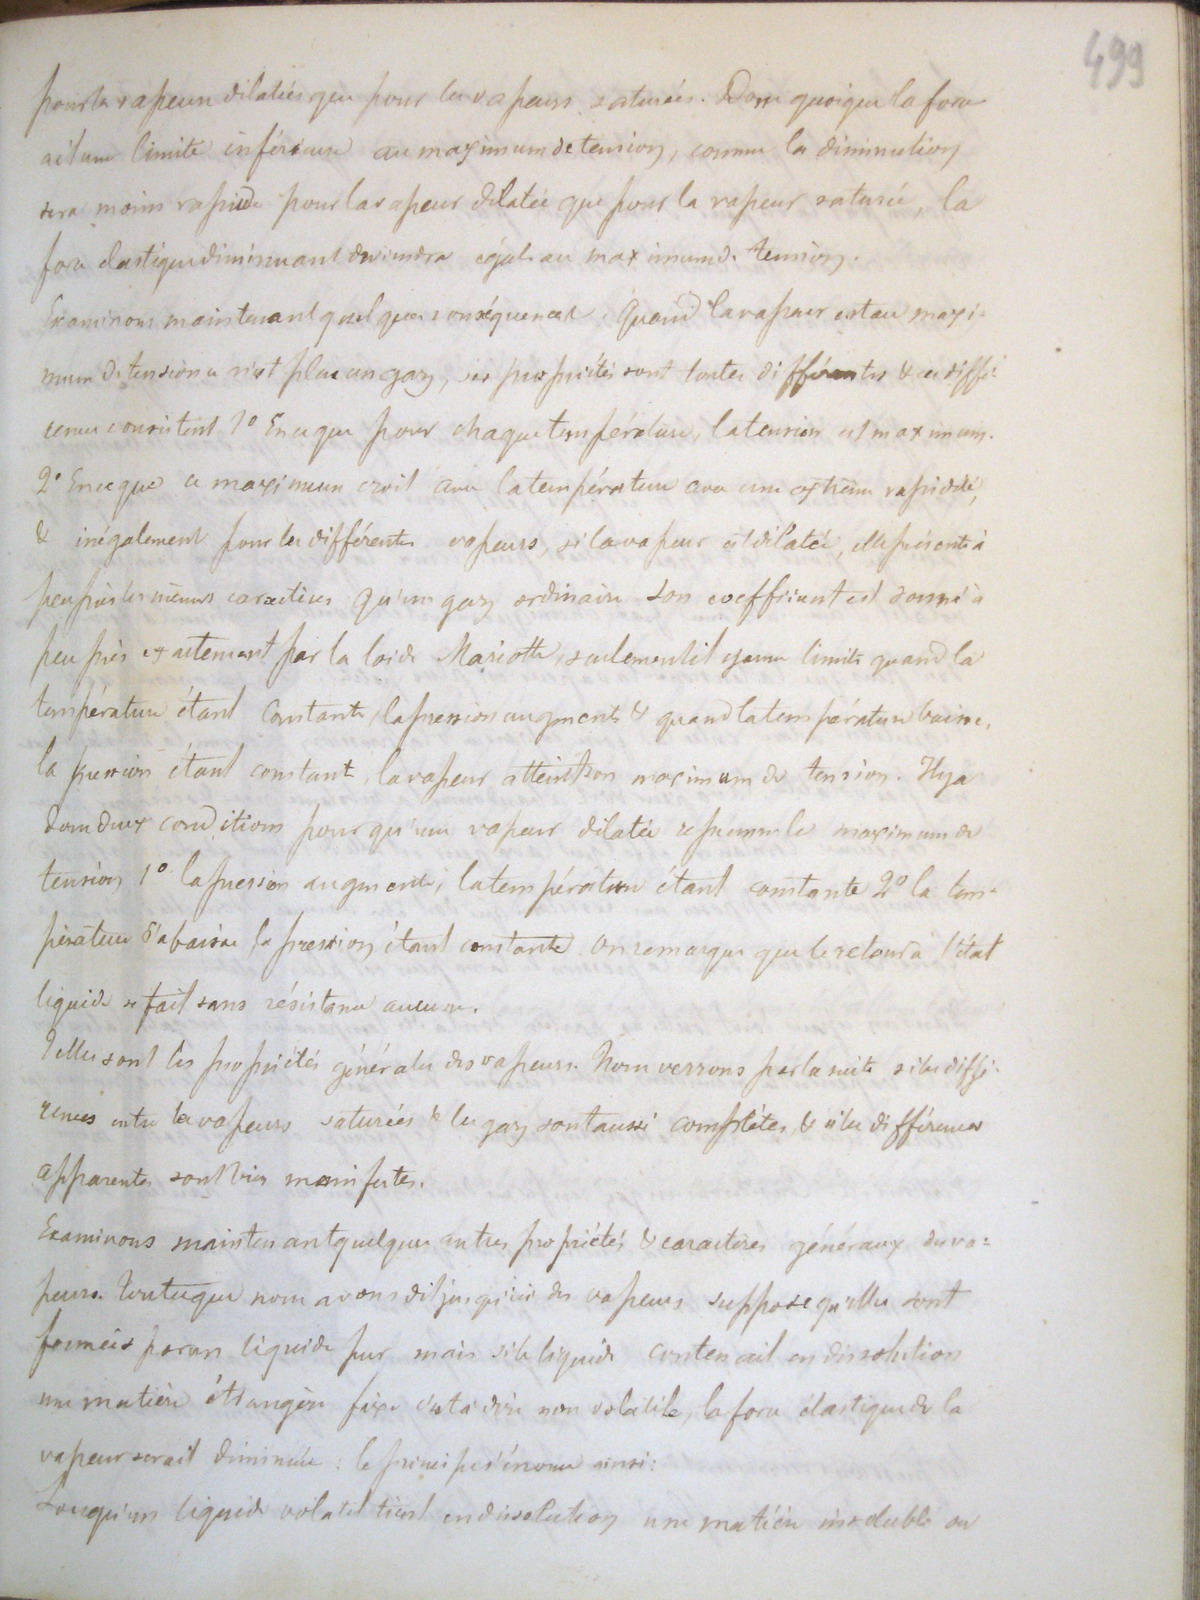 499
pour la vapeur dilatée que pour les vapeurs saturées. Donc quoique la force
ait une limite inférieure au maximum de tension, comme la diminution
sera moins rapide pour la vapeur dilatée que pour la vapeur saturée, la
force élastique diminuant deviendra égale au maximum de tension.
Examinons maintenant quelques conséquences. Quand la vapeur est au maxi-
mum de tension ce n'est plus un gaz, ses propriétés sont toutes différentes & ces diffé-
rences consistent 1° En ce que pour chaque température, la tension est maximum.
2° En ce que ce maximum croît avec la température avec une extrême rapidité,
& inégalement pour les différentes vapeurs, si la vapeur est dilatée, elle présente à
peu près les mêmes caractères qu'un gaz ordinaire son coefficient est donné à
peu près exactement par la loi de Mariotte, seulement il y a une limite quand la
température étant constante, la pression augmente & quand la température baisse,
la pression étant constante, la vapeur atteint son maximum de tension. Il y a
donc deux conditions pour qu'une vapeur dilatée reprenne le maximum de
tension 1° la pression augmente, la température étant constante 2° la tem-
pérature s'abaisse la pression étant constante. On remarque que le retour à l'état
liquide se fait sans résistance aucune.
Telles sont les propriétés générales des vapeurs. Nous verrons par la suite si les diffé-
rences entre les vapeurs saturées & les gaz sont aussi complètes, & si les différences
apparentes sont bien manifestes.
Examinons maintenant quelques autres propriétés & caractères généraux des va=
peurs. Tout ce que nous avons dit jusqu'ici des vapeurs suppose qu'elles sont
formées par un liquide pur mais si le liquide contenait en dissolution
une matière étrangère fixe c'est à dire non volatile, la force élastique de la
vapeur serait diminuée : le principe s'énonce ainsi :
Lorsqu'un liquide volatil tient en dissolution une matière insoluble ou